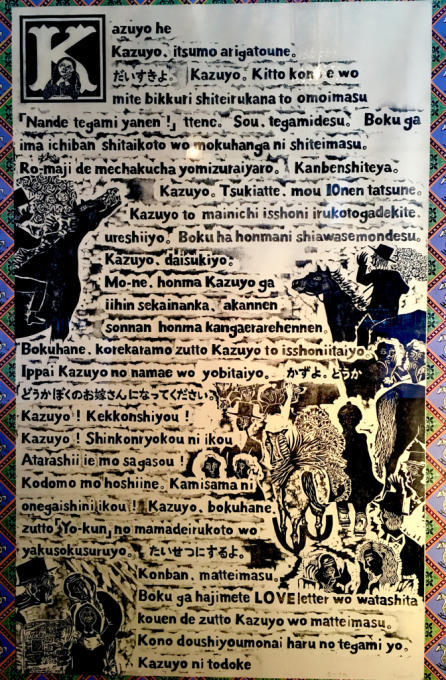 Kazuyo he
Kazuyo. itsumo arigatoune。
だいすきよ。 Kazuyo。Kitto kore wo
mite bikkuri shiteirukana to omoimasu
「Nande tegami yanen!」ttenc。Sou. tegamidesu。 Boku ga
ima ichiban shitaikoto wo mokuhanga ni shiteimasu。
Ro-maji de mechakucha yomizuraiyaro。 Kanbenshiteya。
Kazuyo。Tsukiatte. mou 10nen tatsune。
Kazuyo to mainichi isshoni irukotogadekite.
ureshiiyo。Boku ha honmani shiawasemondesu。
Kazuyo. daisukiyo。
Mo-ne. honma Kazuyo ga
iihin sekainanka. akannen
sonnan honma kangaerarehennen
Bokuhane. korekaramo zutto Kazuyo to isshoniitaiyo。
Ippai Kazuyo no namae wo yobitaiyo。 かずよ。どうか
どうかぼくのお嫁さんになってください。
Kazuyo! Kekkonshiyou!
Kazuyo! Shinkonryokou ni ikou
Atarashii ie mo sagasou!
Kodomo mo hoshiine。Kamisama ni
onegaishini ikou! Kazuyo. bokuhane
zutto「Yo-kun」no mamadeirukoto wo
yakusokusuruyo。 たいせつにするよ。
Konban. matteimasu。
Boku ga hajimete LOVE letter wo watashita
kouen de zutto Kazuyo wo matteimasu。
Kono doushiyoumonai haru no tegami yo。
Kazuyo ni todoke